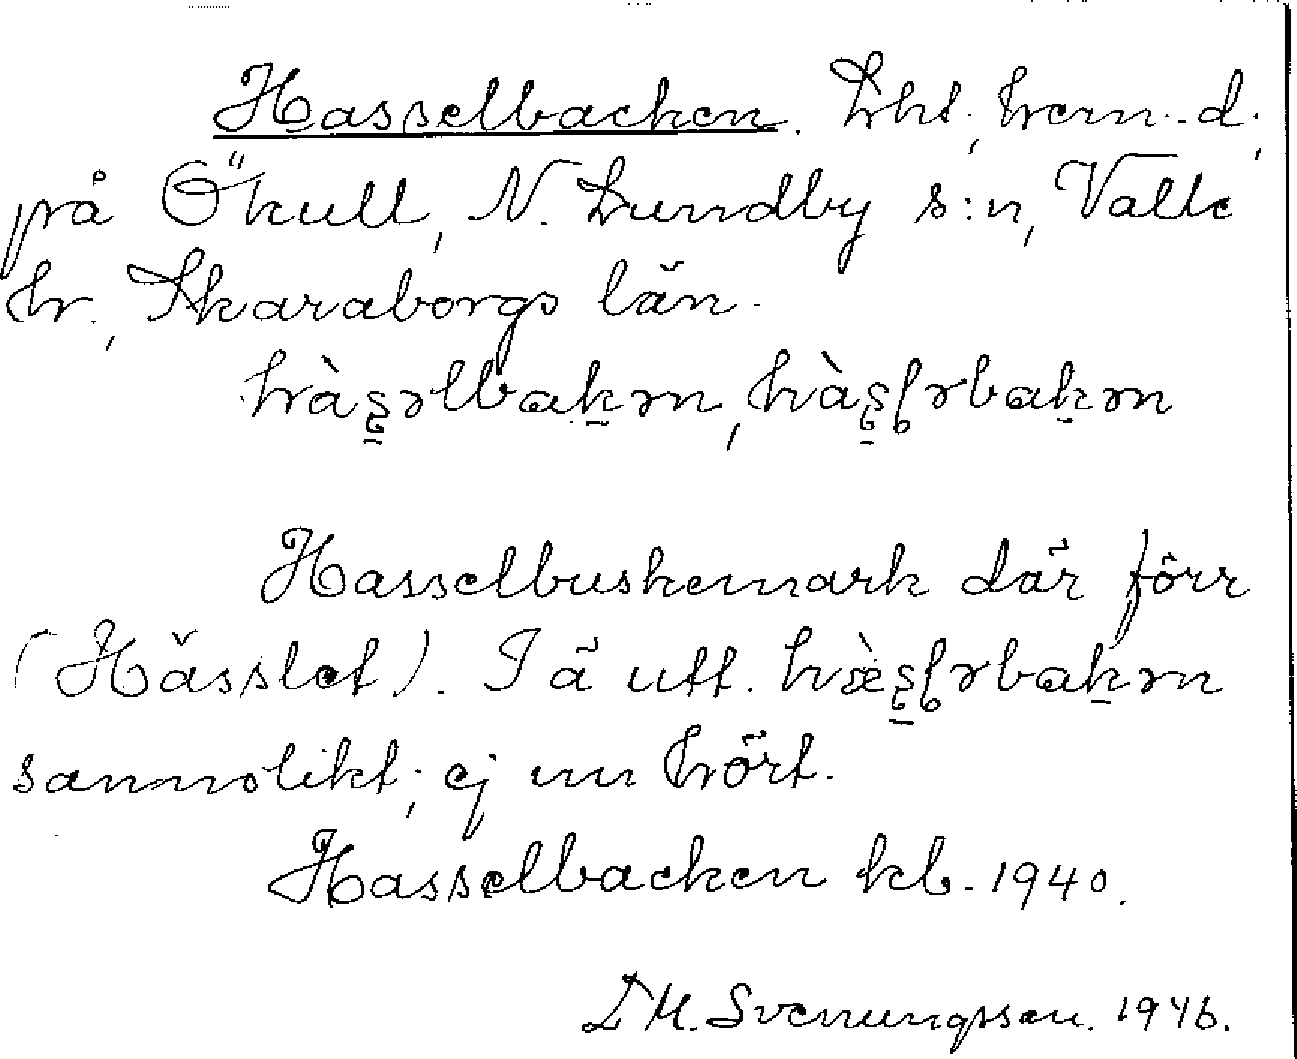 Hasselbacken. Lht, hem.-d.,
på Ökull, N. Lundby s:n, Valle
hr., Skaraborgs län.
hàs̠əlbak̠ən, hàs̠ɭərbak̠ən
Hasselbuskemark där förr
(Hässlet). I ä utt. hæ̀s̠ɭərbak̠ən
sannolikt; ej nu hört.
Hasselbacken kb. 1940.
L M. Svenungsson. 1946.